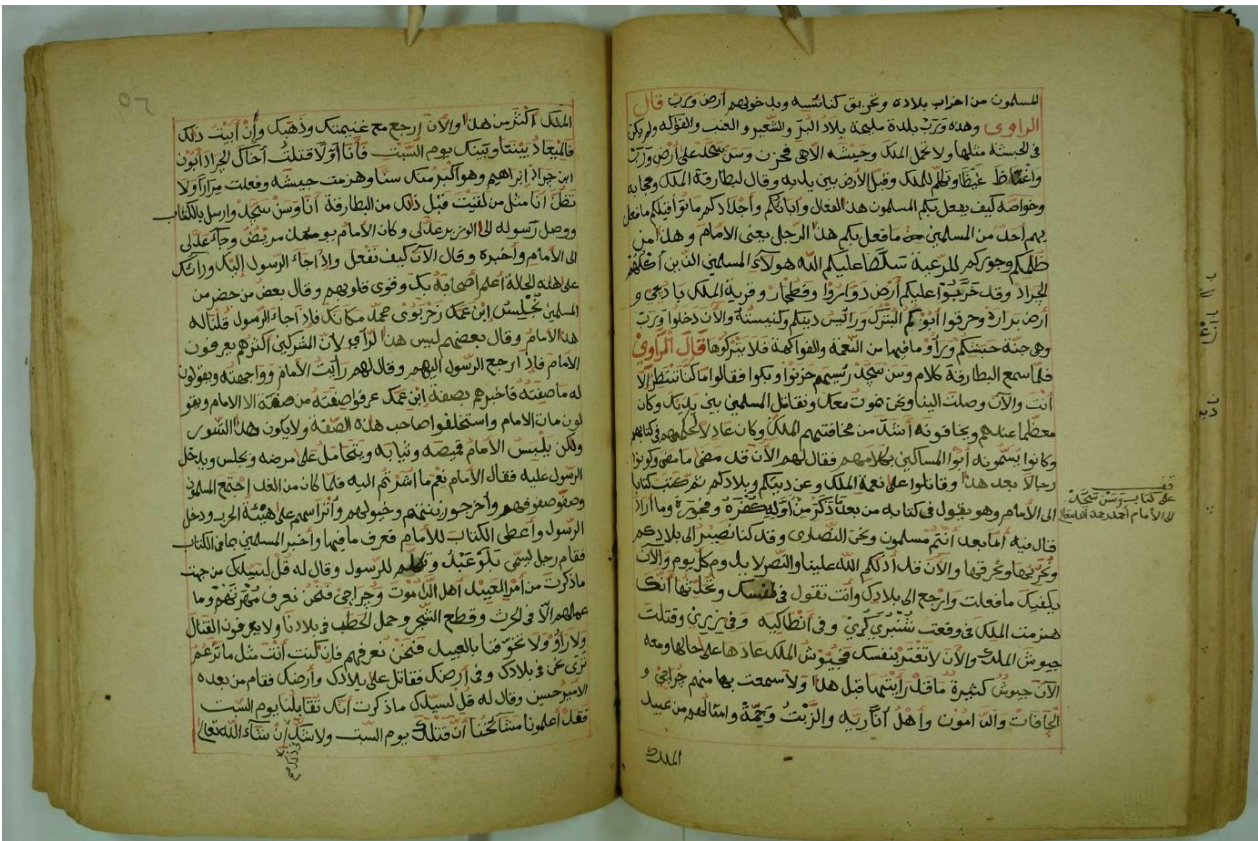 المسلمون من اخراب بلاده وتحريق كنائسه وبدخولهم أرض ورب قال
الراوى وهذه ورب بلدة مليحة بلاد البر والشعير و العنب والفواكه ولم يكن
فى الحبشة مثلها ولا تحمل الملك وجيشه الاهى فحزن وسن سجد على أرض ورب
واغتاظ غيظا وتظلم للملك وقبل الأرض بين يديه وقال لبطارقة الملك وحجابه
وخواصه كيف يفعل بكم المسلمون هذا الفعال وابائكم وأجدادكم ماتوا فيكم ما فعل
بهم أحد من المسلمين مافعل بكم هذا الرجل يعنى الامام وهذا من
ظلمكم وجوركم للرعية سلط عليكم الله هولاء المسلمين الذين أكلهم
الجراد وقد خربوا عليكم أرض دواروا وفطجار وقرية الملك بادقى و
أرض براره وحرقوا أبوكم البترك ورائيس دينكم وكنيسته والآن دخلوا ورب
وهى جنة حبشكم ورأو مافيها من النعمة والفواكهة فلا يتركوها قال الراوى
فلما سمع البطارقة كلام وسن سجد رئيسهم حزنوا وبكوا فقالوا ما كنا ننتظر الا
أنت والآن وصلت الينا ونحن نموت معك ونقاتل المسلمين بين يديك وكان
معظما عندهم ويخافونه أشد من مخافتهم الملك وكان عادلا لحكمهم فى كتابهم
وكانوا يسمونه أبوا المساكين بكلامهم فقال لهم الآن قد مضى ما مضى وكونوا
رجالا بعد هذا وقاتلوا على نعمة الملك وعن دينكم وبلادكم ثم كتب كتابا
الى الأمام وهو يقول فى كتابه من بعد ذكر من أوله كفره وفجوره وما أراد
قال فيه أما بعد أنتم مسلمون ونحن النصارى وقد كنا نصير الى بلادكم
ونخربها ونحرقها والآن قد أدلكم الله علينا والنصر لا يدوم كل يوم والآن
يكفيك مافعلت وارجع الى بلادك وأنت تقول فى نفسك وتحدثها أنك
هزمت الملك فى وقعت شنبرى كورى وفى أنطاكيه وفى زيرى وقتلت
جيوش الملك والآن لا تغتر بنفسك فجيوش الملك عادها على حالها ومعه
الآن جيوش كثيرة ما قد رأيتها قبل هذا ولا سمعت بها منهم جراجى و
الجافات والداموت وأهل أناريه والزنت وجمة وامثالهم من عبيد
الملك
قف
على كتاب وسن سجد
الى الأمام أحمد
الملك أكثر من هذا والآن إرجع مع غنيمتك وذهبك وأن أبيت ذلك
فالميعاد بيننا وبينك يوم السبت فأنا أولا قتلت أخاك الجراد أبون
ابن جراد إبراهيم وهو أكبر منك سنا وهزمت جيشه وفعلت مرارا ولا
تظن أنا مثل من لقيت قبل ذلك من البطارقة أنا وسن سجد وارسل بالكتاب
ووصل رسوله الى الوزير عدلى وكان الأمام يومئذ مريض وجاء عدلى
الى الأمام وأخبره وقال الآن كيف نفعل وإذا جاء الرسول إليك ورأتك
على هذه الحالة أعلم أصحابه بك وقوى قلوبهم وقال بعض من حضر من
المسلمين نجلس ابن عمك زحربوى محمد مكانك فاذا جاء الرسول قلنا له
هذا الأمام وقال بعضهم ليس هذا لرأى لان المشركين أكثرهم يعرفون
الأمام فاذا رجع الرسول اليهم وقال لهم رأيت الأمام وواجهته ويقولون
له ماصفته فأخبرهم بصفة إبن عمك عرفوا صفته من صفة الامام ويقو
لون مات الأمام واستخلفوا صاحب هذه الصفة ولا يكون هذا الشور
ولكن يلبس الأمام قميصه وثيابه ويتحامل على مرضه ويجلس ويدخل
الرسول عليه فقال الأمام نعم ما أشرتم اليه فلما كان من الغد إجتمع المسلمون
وصفو صفوفهم وأخرجوا زينتهم وخيولهم وأتراسهم على هيئة الحرب ودخل
الرسول وأعطى الكتاب للأمام فعرف مافيها وأخبر المسلمين بما فى الكتاب
فقام رجل يسمى تكلو عبد وتكلم للرسول وقال له قل لسيدك من جهت
ماذكرت من أمر العبيد أهل الداموت وجراجى فنحن نعرف مهرتهم وما
عمالهم الا فى الحرث وقطع الشجر وحمل الحطب فى بلادنا ولا يعرفون القتال
ولا رأوه ولا تخوفنا بالعبيد فنحن نعرفهم فان كنت أنت مثل ما تزعم
ترى عن بلادك وفى أرضك فقاتل على بلادك وأرضك فقام من بعده
الأمير حسين وقال له قل لسيدك ماذكرت أنك تقابلنا يوم السبت
فقد أعلمونا مشائخنا أن قتلك يوم السبت ولا شك إن شاء الله تعالى
فى ذلك صح
٥٦